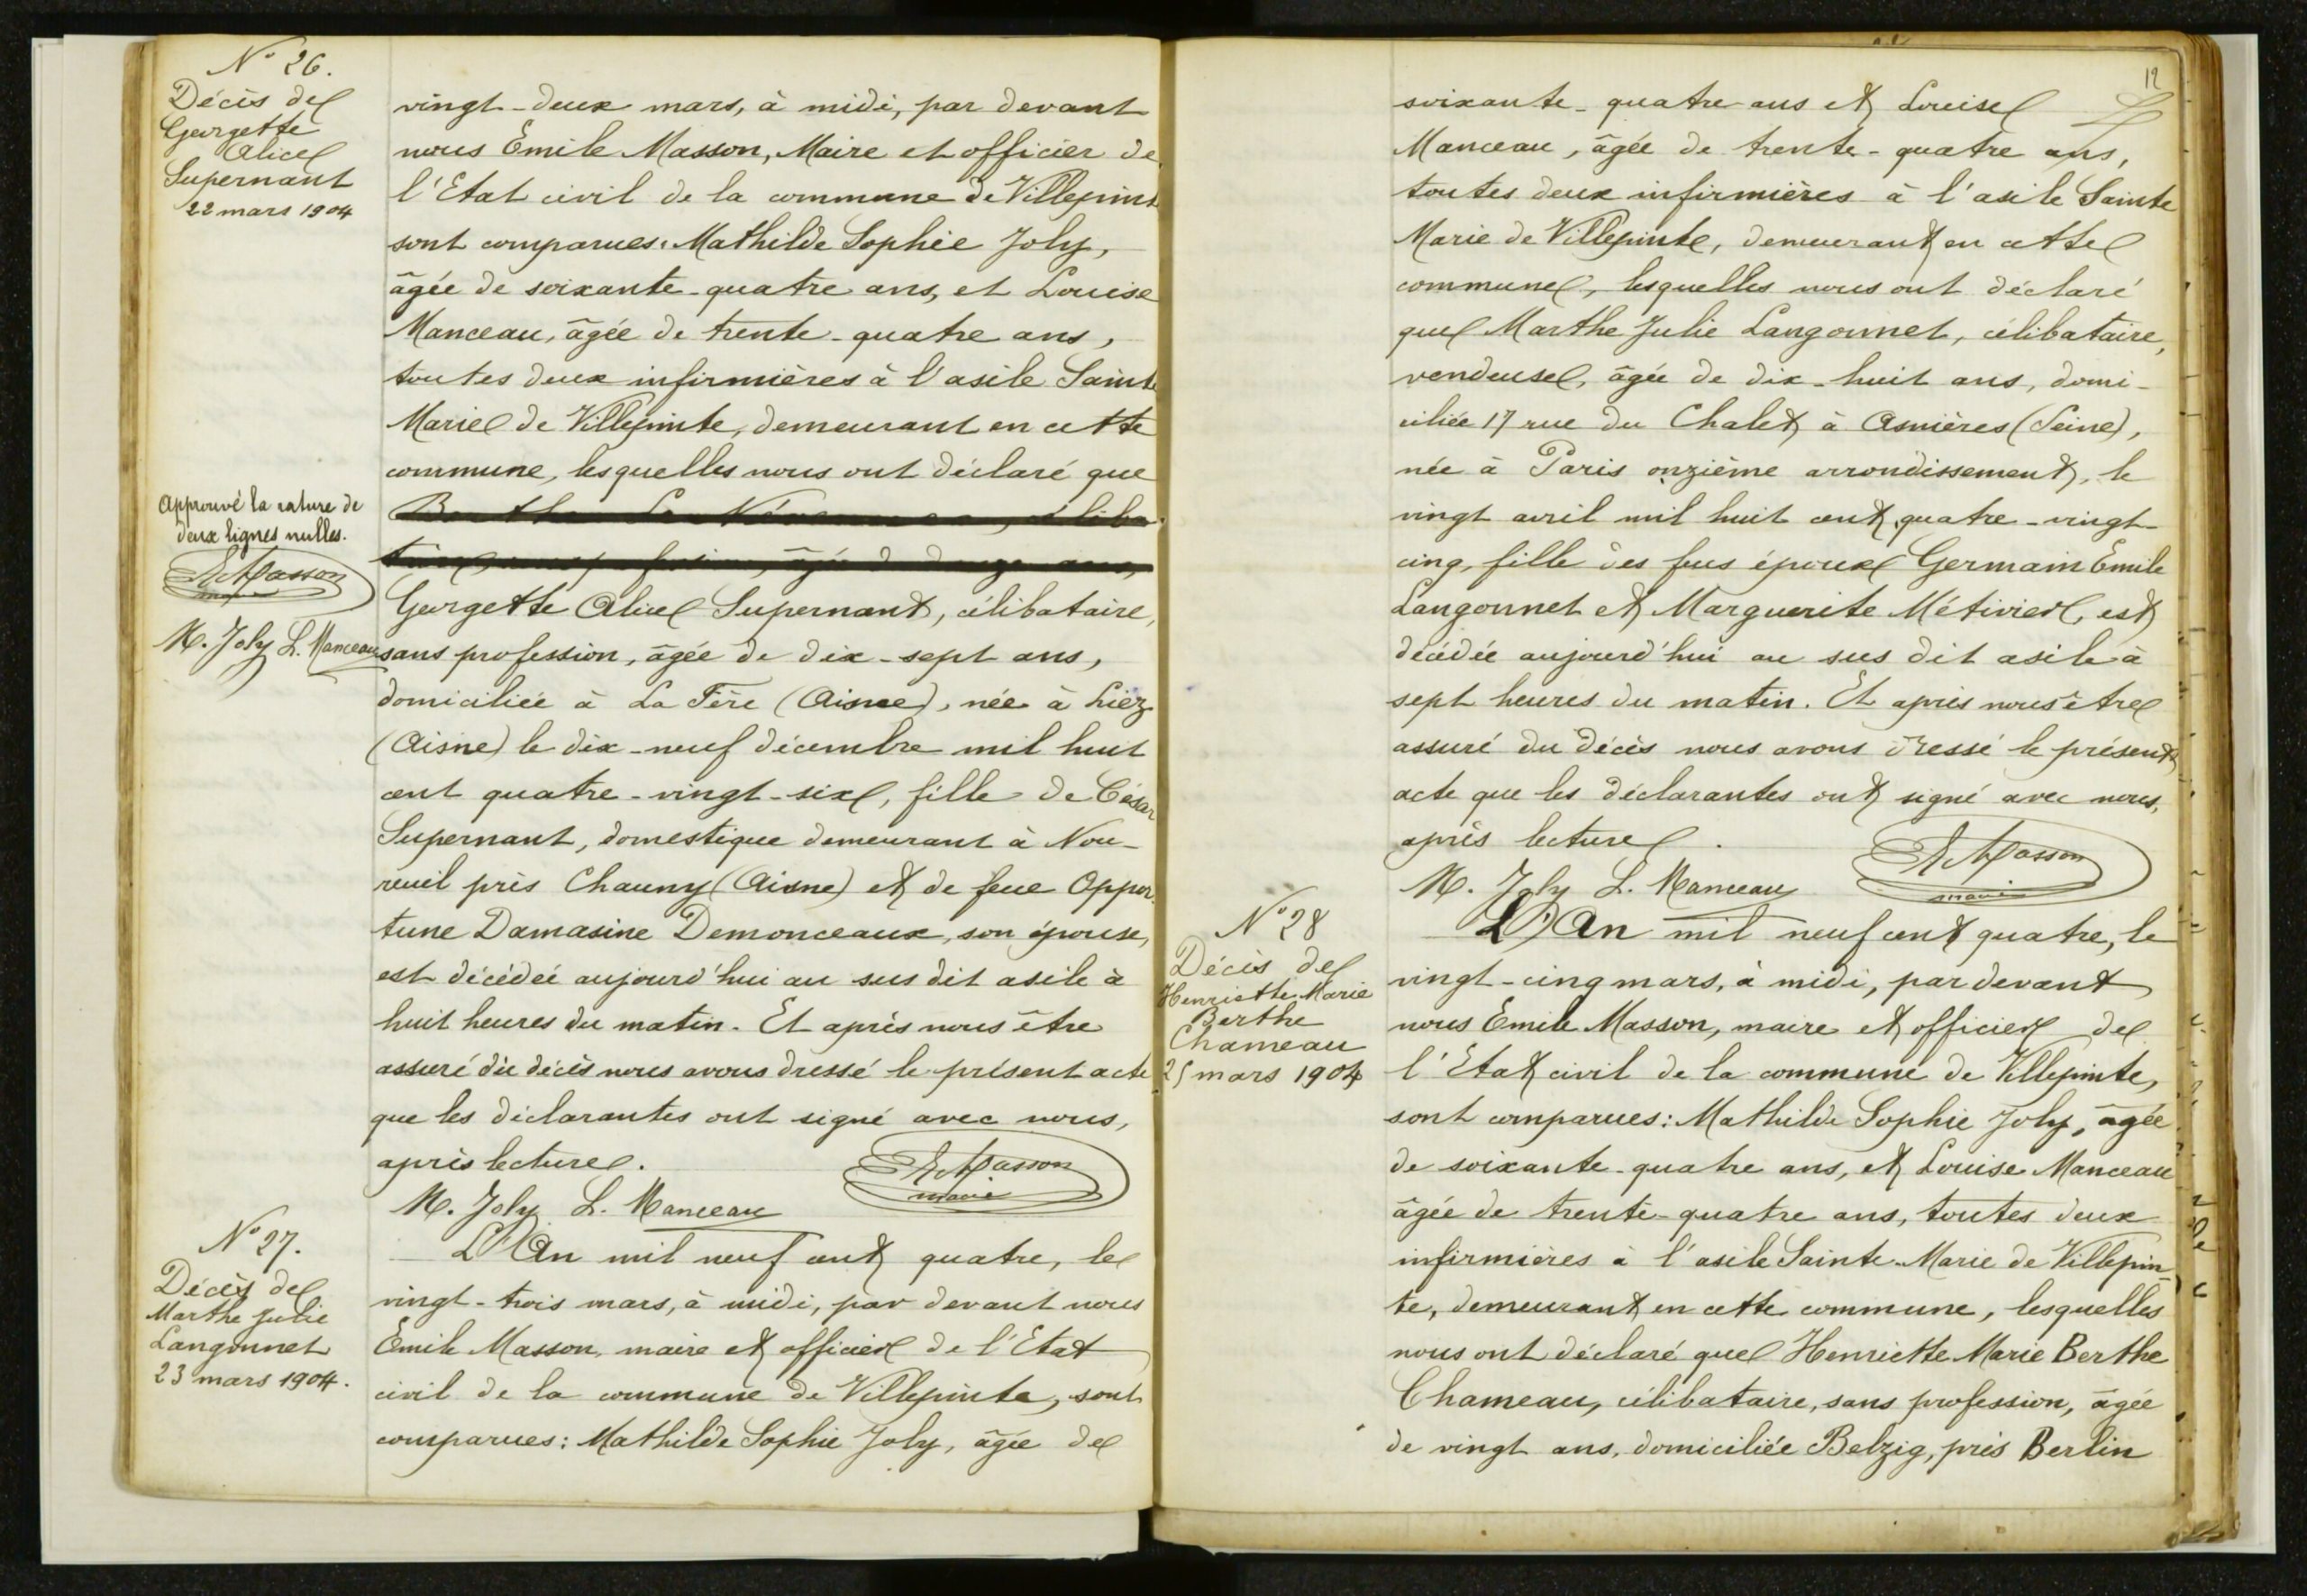 N° 26.
Décès de
Georgette
Alice
Supernant
22 mars 1904
vingt-deux mars, à midi, par devant
nous Emile Masson, Maire et officier de
l'Etat civil de la commune de Villepinte
sont comparues: Mathilde Sophie Joly,
âgée de soixante-quatre ans, et Louise
Manceau, âgée de trente-quatre ans,
toutes deux infirmières à l'asile Sainte
Marie de Villepinte, demeurant en cette
commune, lesquelles nous ont déclaré que
Approuvé la rature de
deux lignes nulles.
E Masson
maire
M. Joly L. Manceau
Georgette Alice Supernant, célibataire,
sans profession, âgée de dix-sept ans,
domiciliée à La Fère (Aisne), née à Liez
(Aisne) le dix-neuf décembre mil huit
cent quatre-vingt-six, fille de César
Supernant, domestique demeurant à Nou-
reuil près Chauny (Aisne) et de feue Oppor
tune Damasine Demonceaux, son épouse,
est décédée aujourd'hui au sus dit asile à
huit heures du matin. Et après nous être
assuré du décès nous avons dressé le présent acte
que les déclarantes ont signé avec nous,
après lecture.
M. Joly L. Manceau
E Masson
maire
N° 27.
Décès de
Marthe Julie
Langonnet
23 mars 1904.
L'An mil neuf cent quatre, le
vingt-trois mars, à midi, par devant nous
Emile Masson, maire et officier de l'Etat
civil de la commune de Villepinte, sont
comparues: Mathilde Sophie Joly, âgée de
12
soixante-quatre ans et Louise
Manceau, âgée de trente-quatre ans,
toutes deux infirmières à l'asile Sainte
Marie de Villepinte, demeurant en cette
commune, lesquelles nous ont déclaré
que Marthe Julie Langonnet, célibataire,
vendeuse, âgée de dix-huit ans, domi-
ciliée 17 rue du Chalet à Asnières (Seine),
née à Paris onzième arrondissement, le
vingt avril mil huit cent quatre-vingt-
cinq, fille des feus époux Germain Emile
Langonnet et Marguerite Métivier, est
décédée aujourd'hui au sus dit asile à
sept heures du matin. Et après nous être
assuré du décès nous avons dressé le présent
acte que les déclarantes ont signé avec nous,
après lecture.
M. Joly L. Manceau
E Masson
maire
N° 28
Décès de
Henriette Marie
Berthe
Chameau
25 mars 1904
L'An mil neuf cent quatre, le
vingt-cinq mars, à midi, par devant
nous Emile Masson, maire et officier de
l'Etat civil de la commune de Villepinte,
sont comparues: Mathilde Sophie Joly, âgée
de soixante-quatre ans, et Louise Manceau
âgée de trente-quatre ans, toutes deux
infirmières à l'asile Sainte-Marie de Villepin-
te, demeurant en cette commune, lesquelles
nous ont déclaré que Henriette Marie Berthe
Chameau, célibataire, sans profession, âgée
de vingt ans, domiciliée Belzig, près Berlin